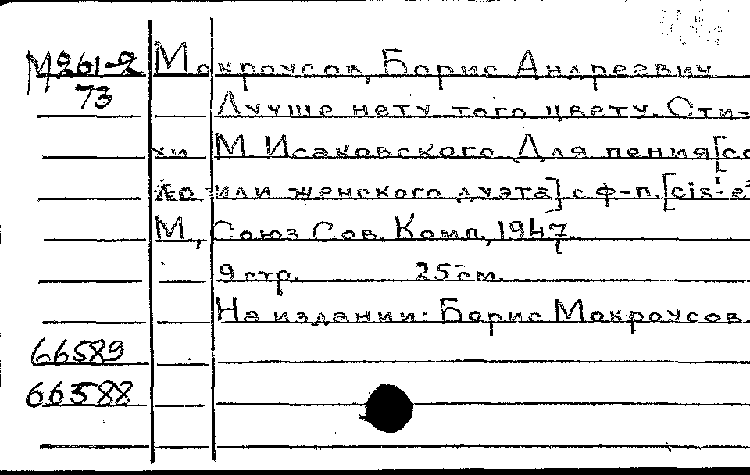 М261-2 Мокроусов, Борис Андреевич
73 Лучше нету того цвету. Сти-
хи М. Исаковского. Для пения [со
ло или женского дуэта] с ф-п. [cis-e²
М., Союз Сов. Комп., 1947
9 стр. 25 см.
На издании: Борис Мокроусов.
66589
66588